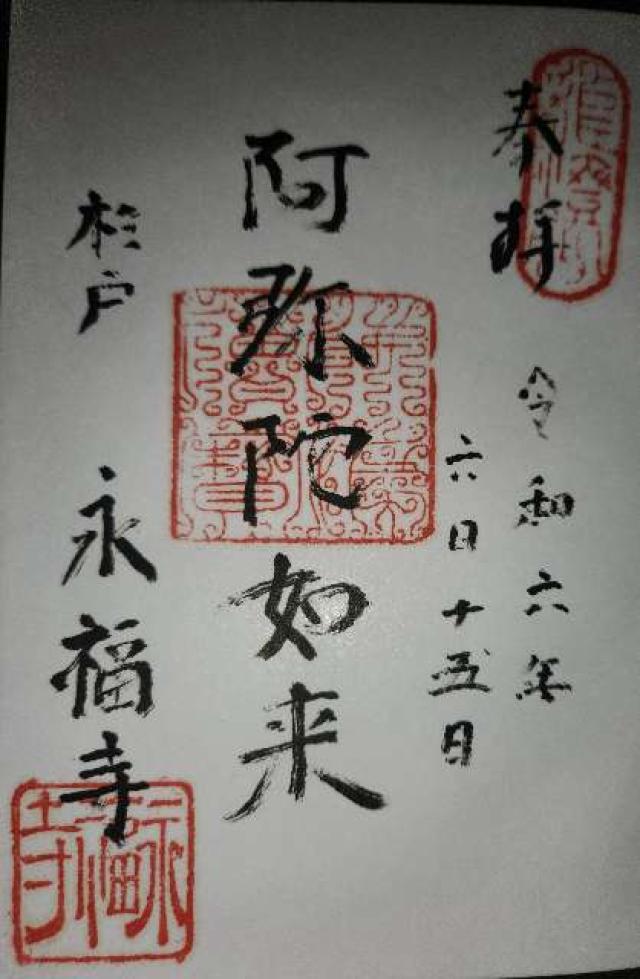 奉拝
令和六年
六日十五日
阿弥陀如来
杉戸
永福寺
永福寺